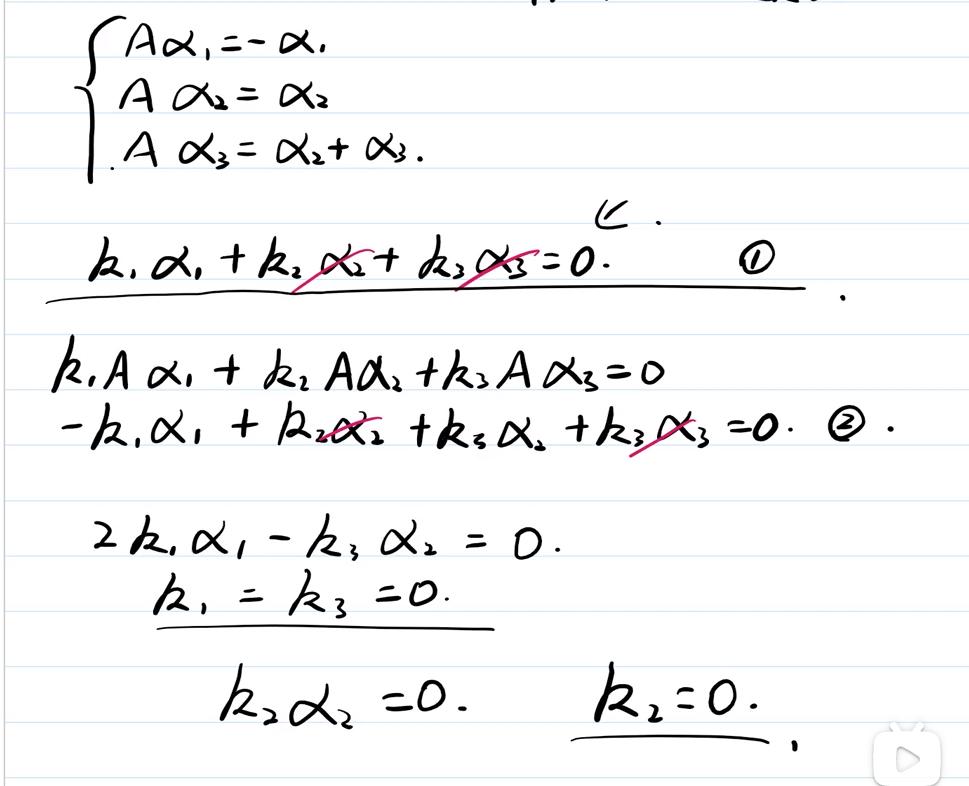 Aα₁=-α₁
Aα₂=α₂
Aα₃=α₂+α₃.
k₁α₁+k₂α₂+k₃α₃=0. ①
k₁Aα₁+k₂Aα₂+k₃Aα₃=0
-k₁α₁+k₂α₂+k₃α₂+k₃α₃=0. ②.
2k₁α₁-k₃α₂=0.
k₁=k₃=0.
k₂α₂=0. k₂=0.